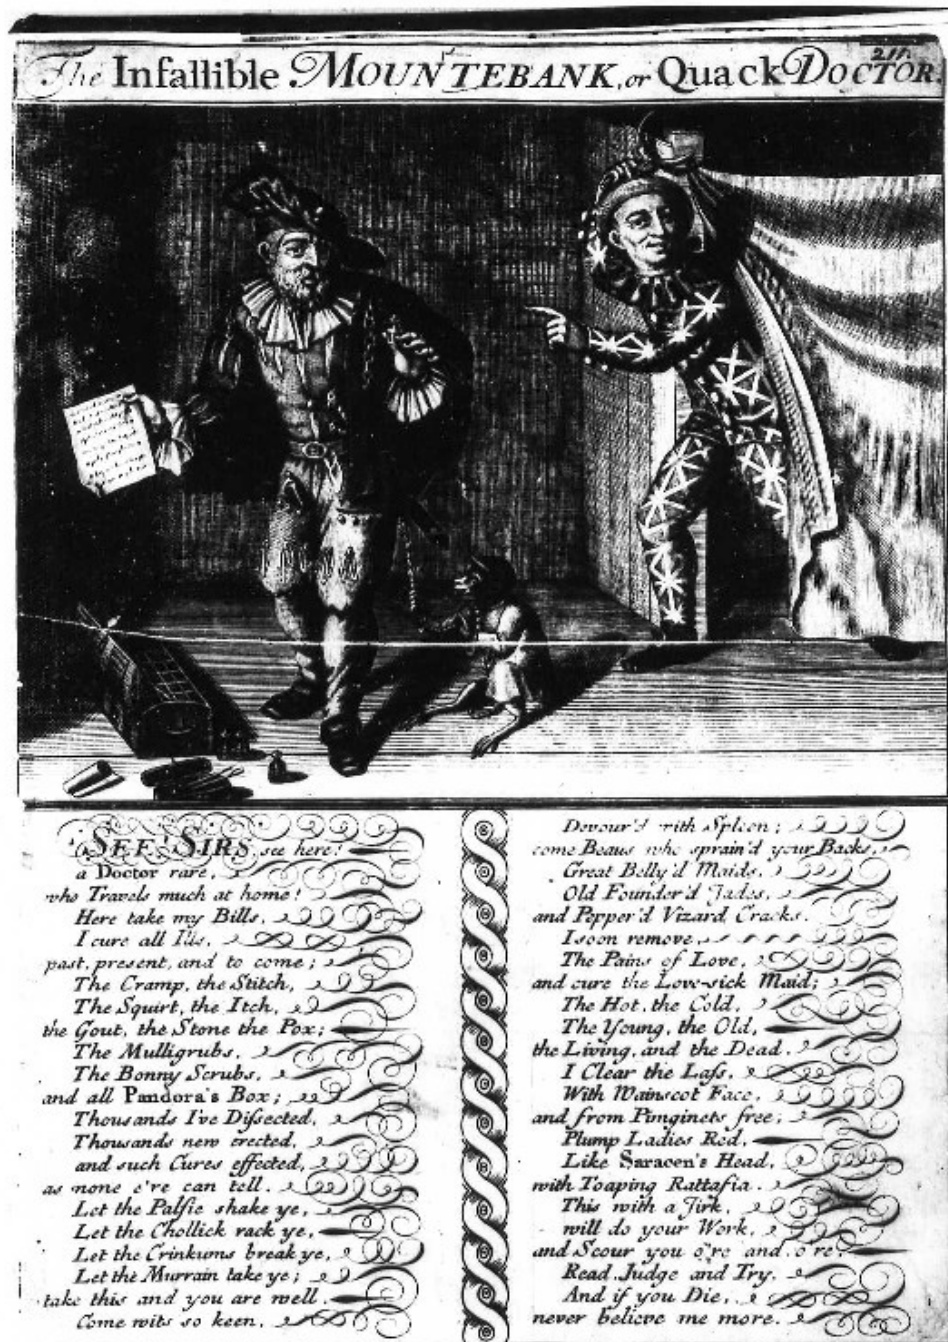 The Infallible MOUNTEBANK, or Quack DOCTOR.
211.
SEE SIRS, see here!
a Doctor rare,
who Travels much at home!
Here take my Bills,
I cure all Ills,
past, present, and to come;
The Cramp, the Stitch,
The Squirt, the Itch,
the Gout, the Stone the Pox;
The Mulligrubs,
The Bonny Scrubs,
and all Pandora's Box;
Thousands I've Dissected,
Thousands new erected,
and such Cures effected,
as none e're can tell.
Let the Palsie shake ye,
Let the Chollick rack ye,
Let the Crinkums break ye,
Let the Murrain take ye;
take this and you are well.
Come wits so keen,
Devour'd with Spleen;
come Beaus who sprain'd your Backs,
Great Belly'd Maids,
Old Founder'd Jades,
and Pepper'd Vizard Cracks.
I soon remove,
The Pains of Love,
and cure the Love-sick Maid;
The Hot, the Cold,
The Young, the Old,
the Living, and the Dead.
I Clear the Lass,
With Wainscot Face,
and from Pimginets free,
Plump Ladies Red,
Like Saracen's Head,
with Toaping Rattafia.
This with a Jirk,
will do your Work,
and Scour you o're and o're,
Read, Judge and Try,
And if you Die,
never believe me more.